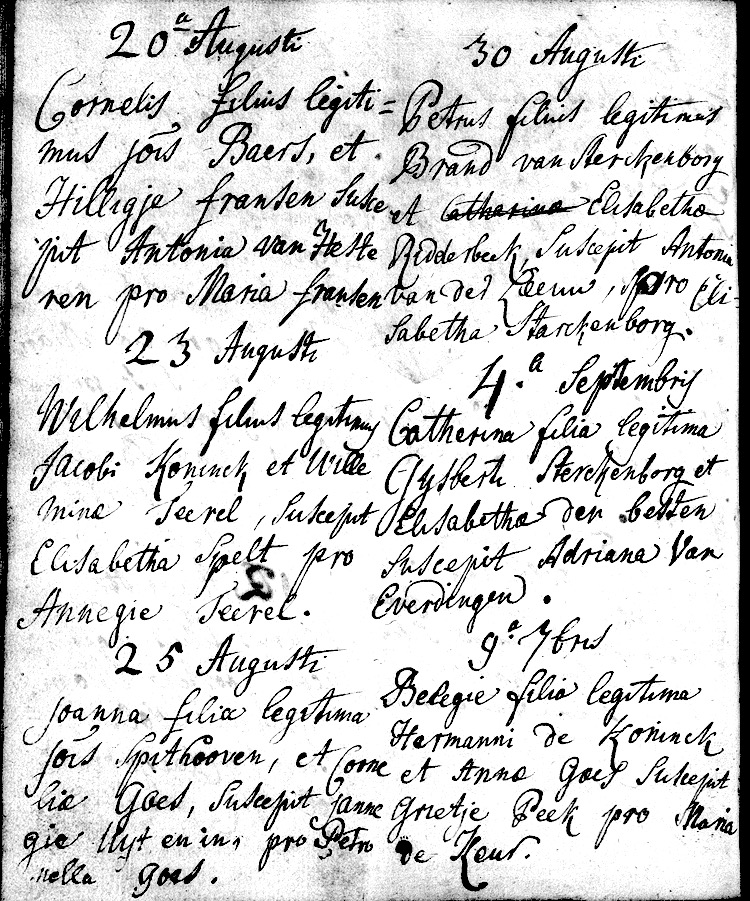 20ᵃ Augusti
Cornelis filius legiti=
mus jõis Baers, et
Hilligje fransen susce
pit Antonia van Heste
ren pro Maria fransen
23 Augusti
Wilhelmus filius legitimus
Jacobi Koninck et Wille
minæ Teerel, suscepit
Elisabetha Spelt pro
Annegie Teerel.
25 Augusti
Joanna filia legitima
jõis Spithooven, et Corne
liæ Goes, suscepit Janne
gie Uyt en in, pro Petro
nella Goes.
30 Augusti
Petrus filius legitimus
Brand van Sterckenborg
et Catharinæ Elisabethæ
Ridderbeek, suscepit Antonia
van der Leeuw, pro Eli-
sabetha Starckenborg.
4.ᵃ Septembris
Catherina filia legitima
Gysberti Sterckenborg et
Elisabethæ den besten
suscepit Adriana Van
Everdingen.
9ᵃ 7bris
Belegie filia legitima
Hermanni de Koninck
et Annæ Goes suscepit
Grietje Peek pro Maria
de Keur.